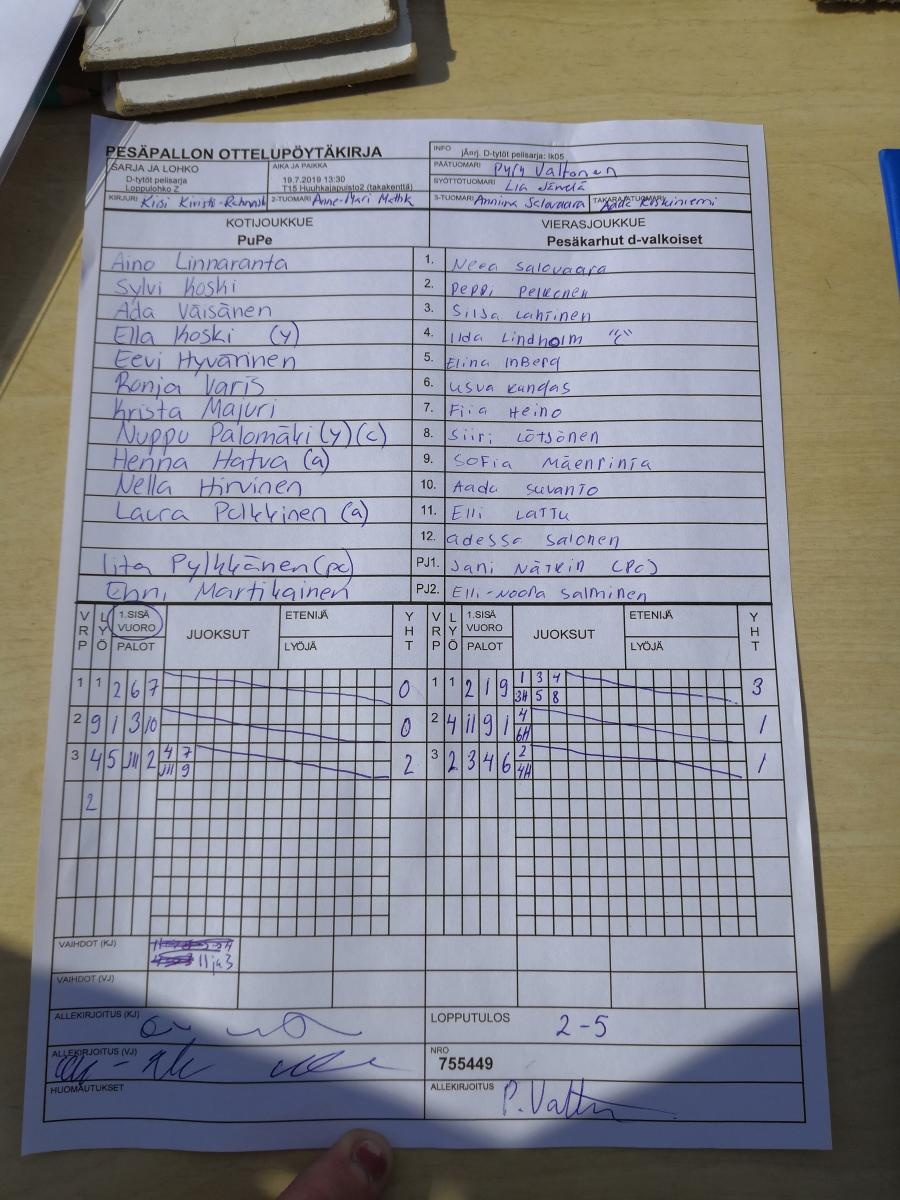 PESÄPALLON OTTELUPÖYTÄKIRJA
INFO jÄnj. D-tytöt pelisarja: lk05
SARJA JA LOHKO
D-tytöt pelisarja
Loppulohko Z
AIKA JA PAIKKA
19.7.2019 13:30
T15 Huuhkajapuisto2 (takakenttä)
PÄÄTUOMARI Pyry Valtonen
SYÖTTÖTUOMARI Lia
KIRJURI Kiisi
2-TUOMARI Anne-Mari
3-TUOMARI Anniina Salovaara
TAKARAJATUOMARI Aada Koskiniemi
KOTIJOUKKUE
PuPe
VIERASJOUKKUE
Pesäkarhut d-valkoiset
Aino Linnaranta 1. Neea Salovaara
Sylvi Koski 2. Peppi Pelkonen
Ada Väisänen 3. Silja Lahtinen
Ella Koski (y) 4. Iida Lindholm "c"
Eevi Hyvärinen 5. Elina InBerg
Ronja Varis 6. Usva Kangas
Krista Majuri 7. Fiia Heino
Nuppu Palomäki (y)(c) 8. Siiri Lötjönen
Henna Hatva (a) 9. Sofia Mäenrinta
Nella Hirvinen 10. Aada Suvanto
Laura Pulkkinen (a) 11. Elli Lattu
12. Adessa Salonen
Iita Pylkkänen (pc) PJ1. Jani Närkin (PC)
Enni Martikainen PJ2. Elli-Noora Salminen
VRP LYÖ 1.SISÄ VUORO PALOT JUOKSUT ETENIJÄ LYÖJÄ YHT VRP LYÖ 1.SISÄ VUORO PALOT JUOKSUT ETENIJÄ LYÖJÄ YHT
1 1 2 6 7 0 1 1 2 1 9 1 3 4 3
3H 5 8
2 9 1 3 10 0 2 4 11 9 1 4 1
6H
3 4 5 JII 2 4 7 2 3 2 3 4 6 2 1
JII 9 4H
2
VAIHDOT (KJ) 11 ja 3
VAIHDOT (VJ)
ALLEKIRJOITUS (KJ)
LOPPUTULOS 2-5
ALLEKIRJOITUS (VJ)
NRO
755449
HUOMAUTUKSET
ALLEKIRJOITUS P. Valtonen